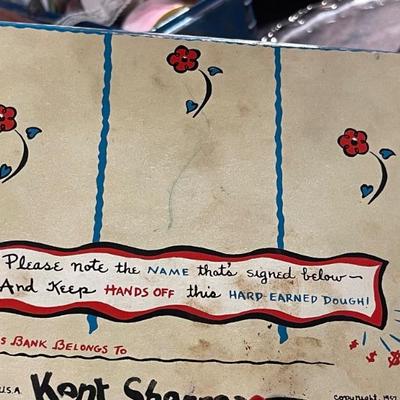 Please note the NAME that's signed below~
And Keep HANDS OFF this HARD EARNED DOUGH!
S BANK BELONGS TO
U.S.A. Kent
Copyright, 195